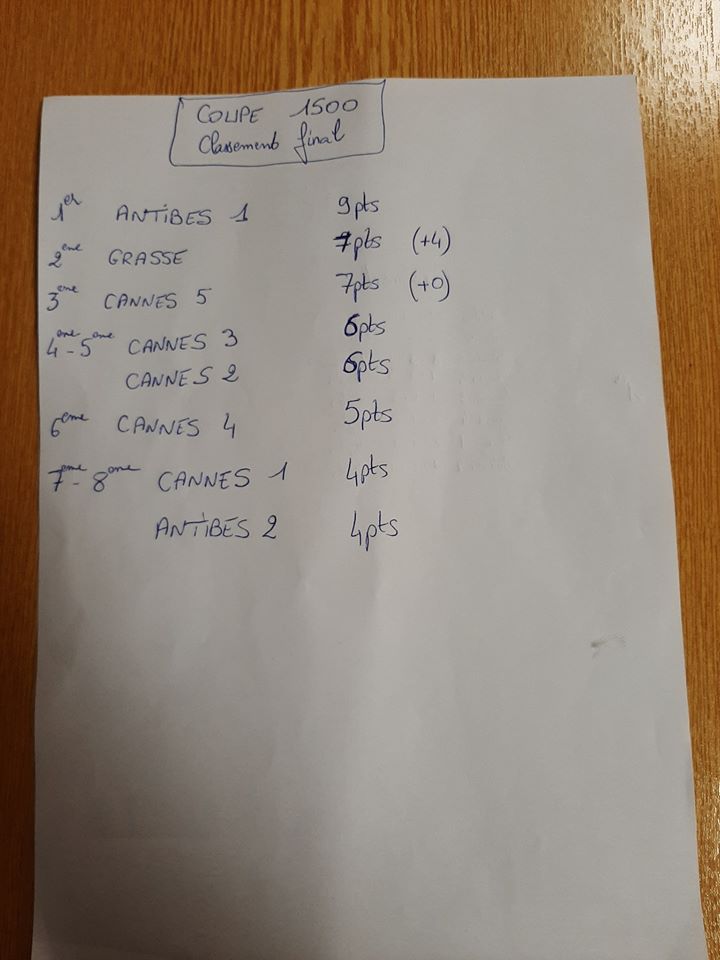 COUPE 1500
Classement final
1er ANTIBES 1 9pts
2eme GRASSE 7pts (+4)
3eme CANNES 5 7pts (+0)
4eme-5eme CANNES 3 6pts
CANNES 2 6pts
6eme CANNES 4 5pts
7eme-8eme CANNES 1 4pts
ANTIBES 2 4pts